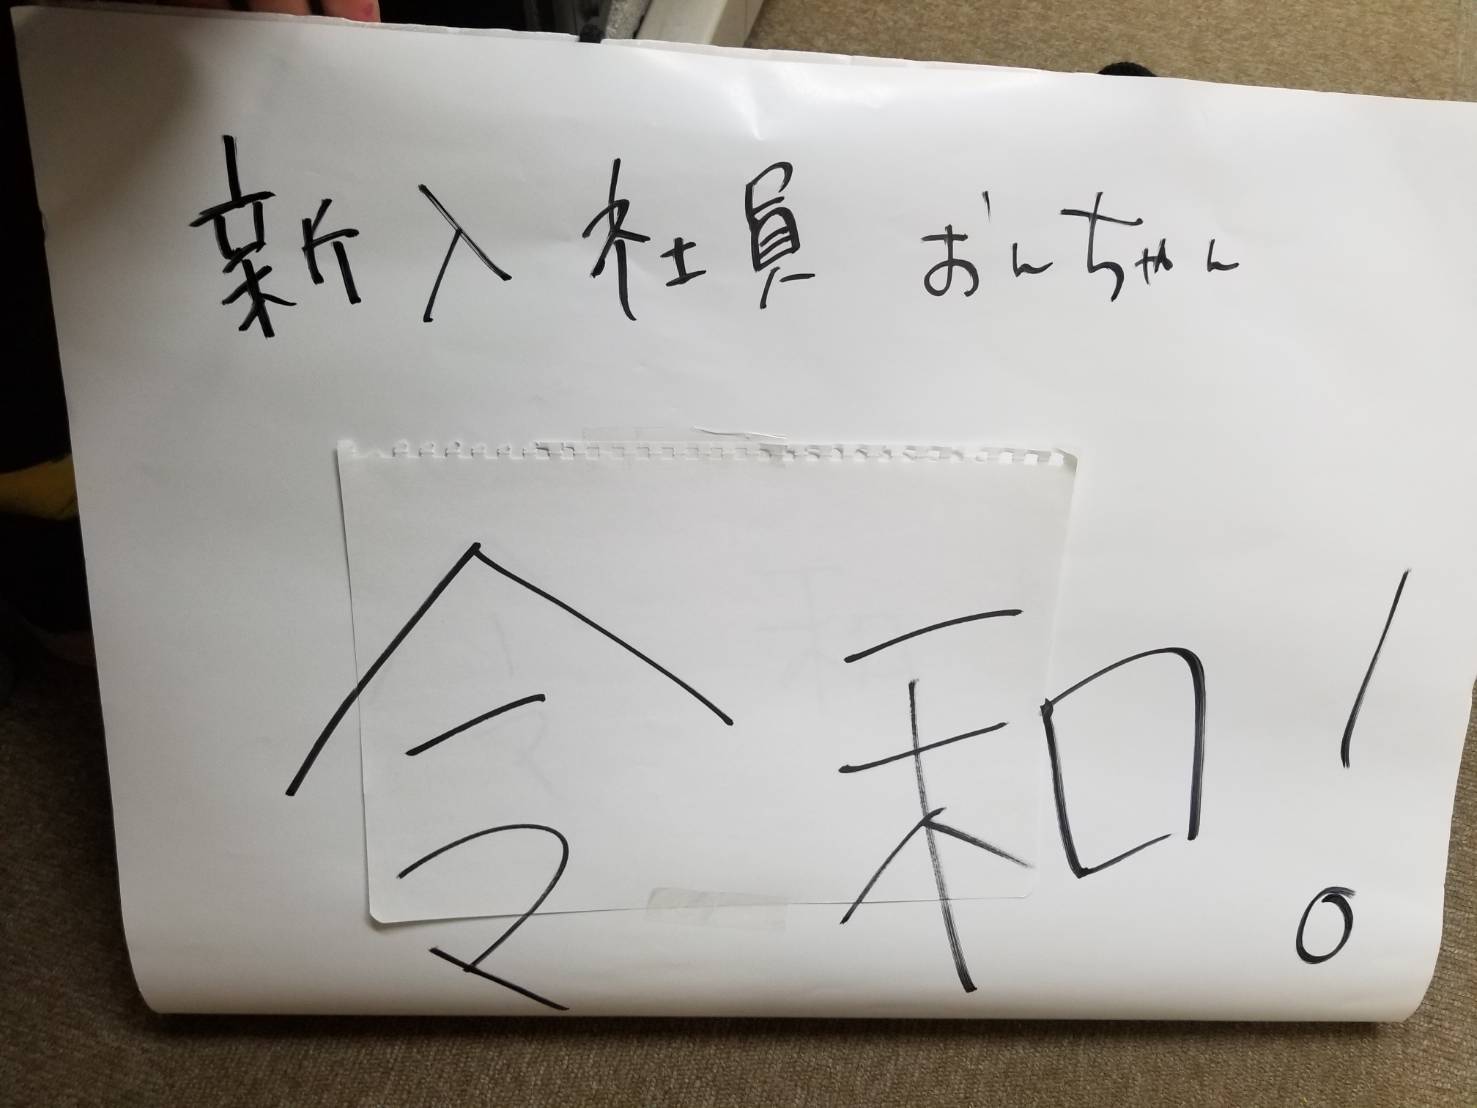 新入社員 おんちゃん
令和!